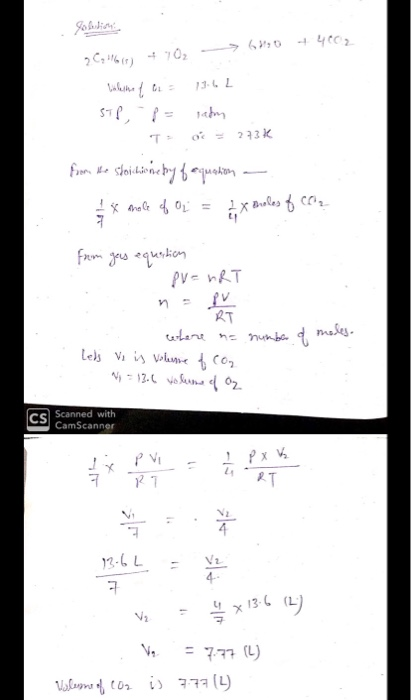 Solution:
2C2H6(g) + 7O2 → 6H2O + 4CO2
Volume of O2 = 13.6 L
STP, P = 1atm
T = 0°C = 273K
From the stoichiometry of equation —
1/7 × mole of O2 = 1/4 × moles of CO2
From gas equation
PV = nRT
n = PV/RT
where n = number of moles.
Lets V2 is Volume of CO2
V1 = 13.6 volume of O2
CS Scanned with
CamScanner
1/7 × PV1/RT = 1/4 P × V2/RT
V1/7 = V2/4
13.6 L/7 = V2/4
V2 = 4/7 × 13.6 (L)
V2 = 7.77 (L)
Volume of CO2 is 7.77 (L)